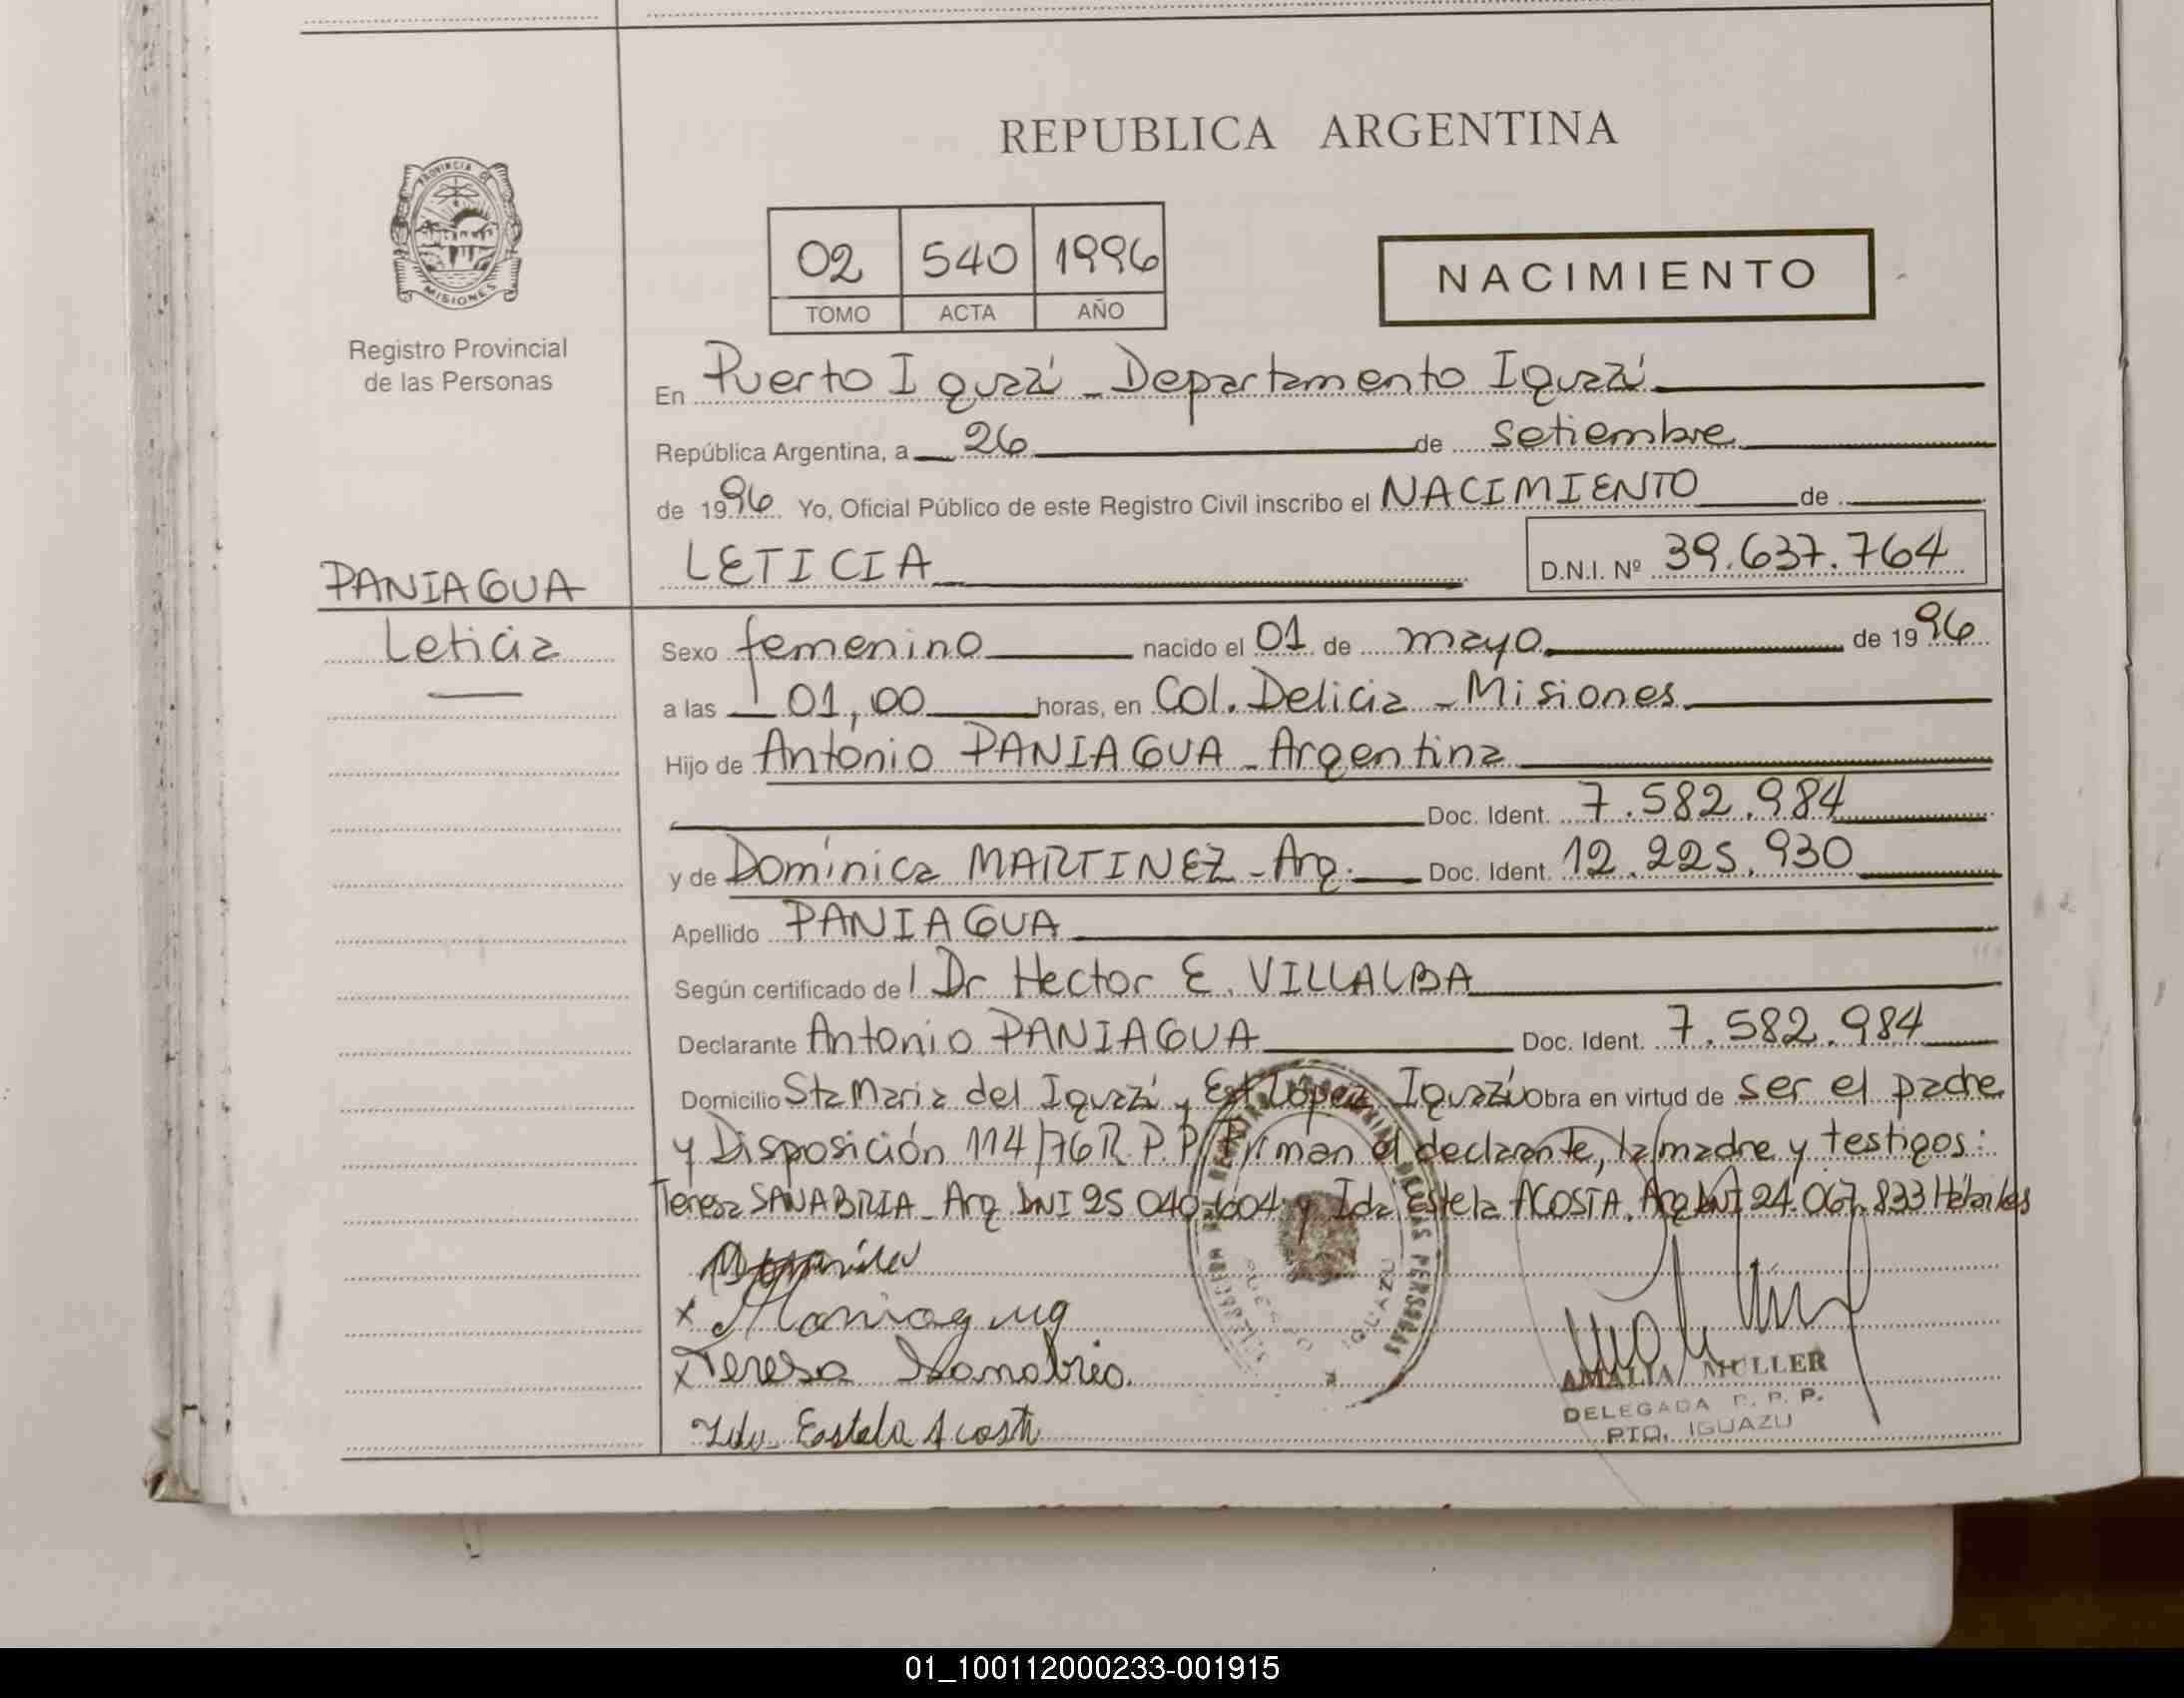 REPUBLICA ARGENTINA
PROVINCIA DE
MISIONES
Registro Provincial
de las Personas
02 540 1996
TOMO ACTA AÑO
NACIMIENTO
En Puerto Iguazú - Departamento Iguazú
República Argentina, a 26 de setiembre
de 1996 Yo, Oficial Público de este Registro Civil inscribo el NACIMIENTO de
LETICIA D.N.I. Nº 39.637.764
PANIAGUA
Leticia
Sexo femenino nacido el 01 de mayo de 1996
a las 01,00 horas, en Col. Delicia - Misiones
Hijo de Antonio PANIAGUA - Argentina
Doc. Ident. 7.582.984
y de Dominica MARTINEZ - Arg. Doc. Ident. 12.225.930
Apellido PANIAGUA
Según certificado de l Dr Hector E. VILLALBA
Declarante Antonio PANIAGUA Doc. Ident. 7.582.984
Domicilio Sta Maria del Iguazú y Est. López Iguazú Obra en virtud de ser el padre
y Disposición 114/76 R.P.P. Firman el declarante, la madre y testigos:
Teresa SANABRIA - Arg. DNI 25.040.604 y Ida Estela ACOSTA. Arg. DNI 24.067.833
x
x Teresa Sanabria.
Ida Estela Acosta
PUERTO IGUAZU
AMALIA MULLER
DELEGADA R. P. P.
PTO. IGUAZU
01_100112000233-001915